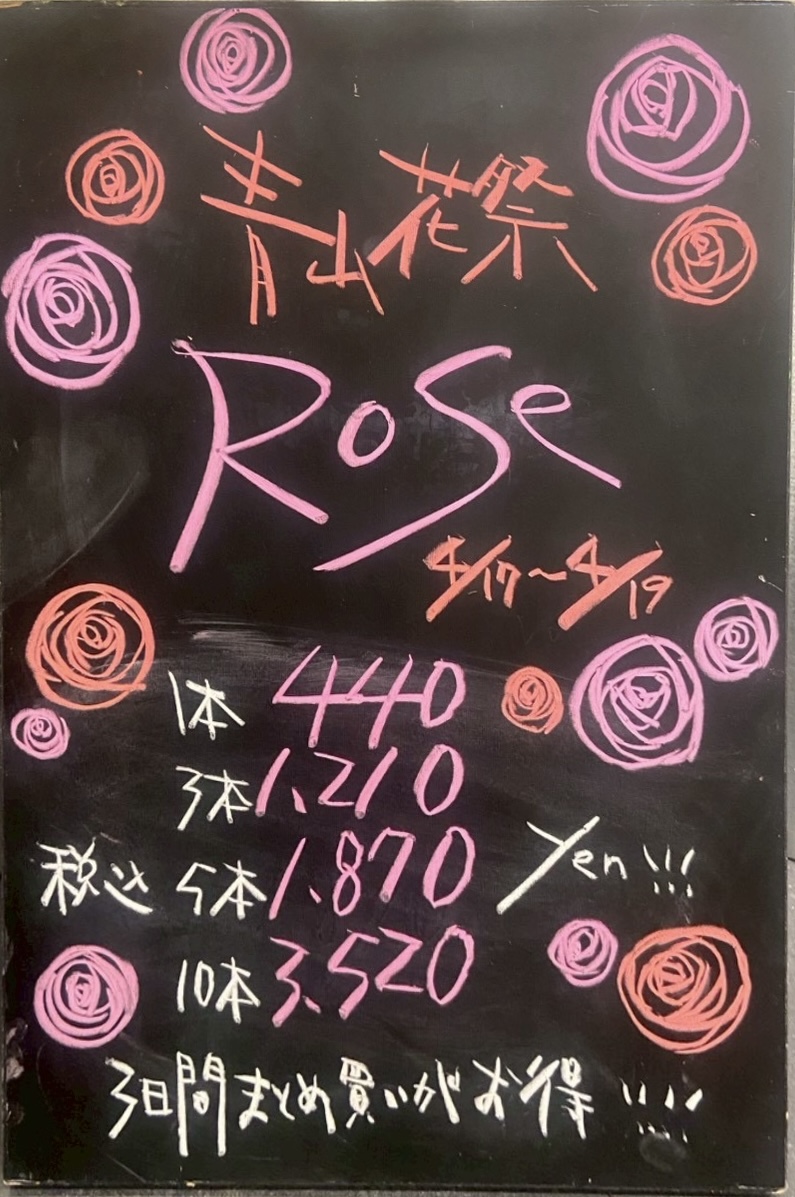 青山花祭
Rose
4/17~4/19
1本 440
3本 1.210
税込 5本 1.870 Yen!!!
10本 3.520
3日間まとめ買いがお得!!!!